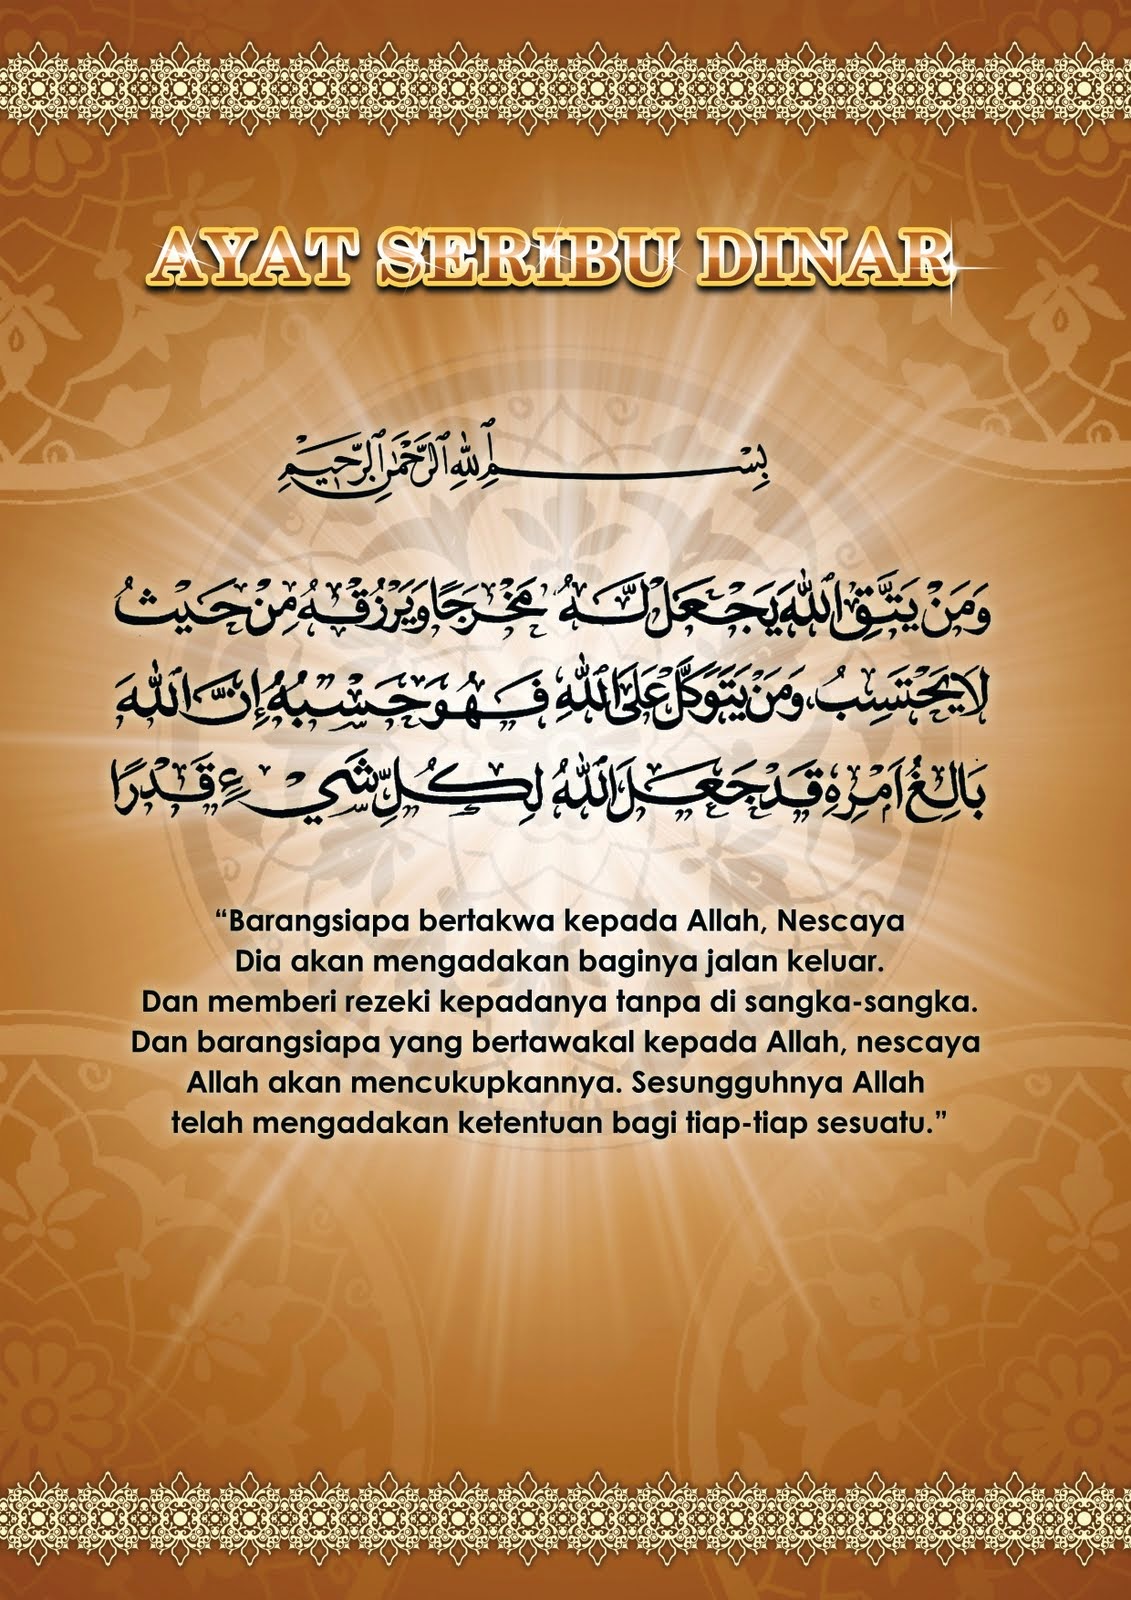 AYAT SERIBU DINAR
بِسْمِ ٱللَّهِ ٱلرَّحْمَٰنِ ٱلرَّحِيمِ
وَمَنْ يَتَّقِ ٱللَّهَ يَجْعَل لَّهُ مَخْرَجًا وَيَرْزُقْهُ مِنْ حَيْثُ
لَا يَحْتَسِبُ، وَمَنْ يَتَوَكَّلْ عَلَى ٱللَّهِ فَهُوَ حَسْبُهُ إِنَّ ٱللَّهَ
بَالِغُ أَمْرِهِ قَدْ جَعَلَ ٱللَّهُ لِكُلِّ شَيْءٍ قَدْرًا
“Barangsiapa bertakwa kepada Allah, Nescaya
Dia akan mengadakan baginya jalan keluar.
Dan memberi rezeki kepadanya tanpa di sangka-sangka.
Dan barangsiapa yang bertawakal kepada Allah, nescaya
Allah akan mencukupkannya. Sesungguhnya Allah
telah mengadakan ketentuan bagi tiap-tiap sesuatu.”